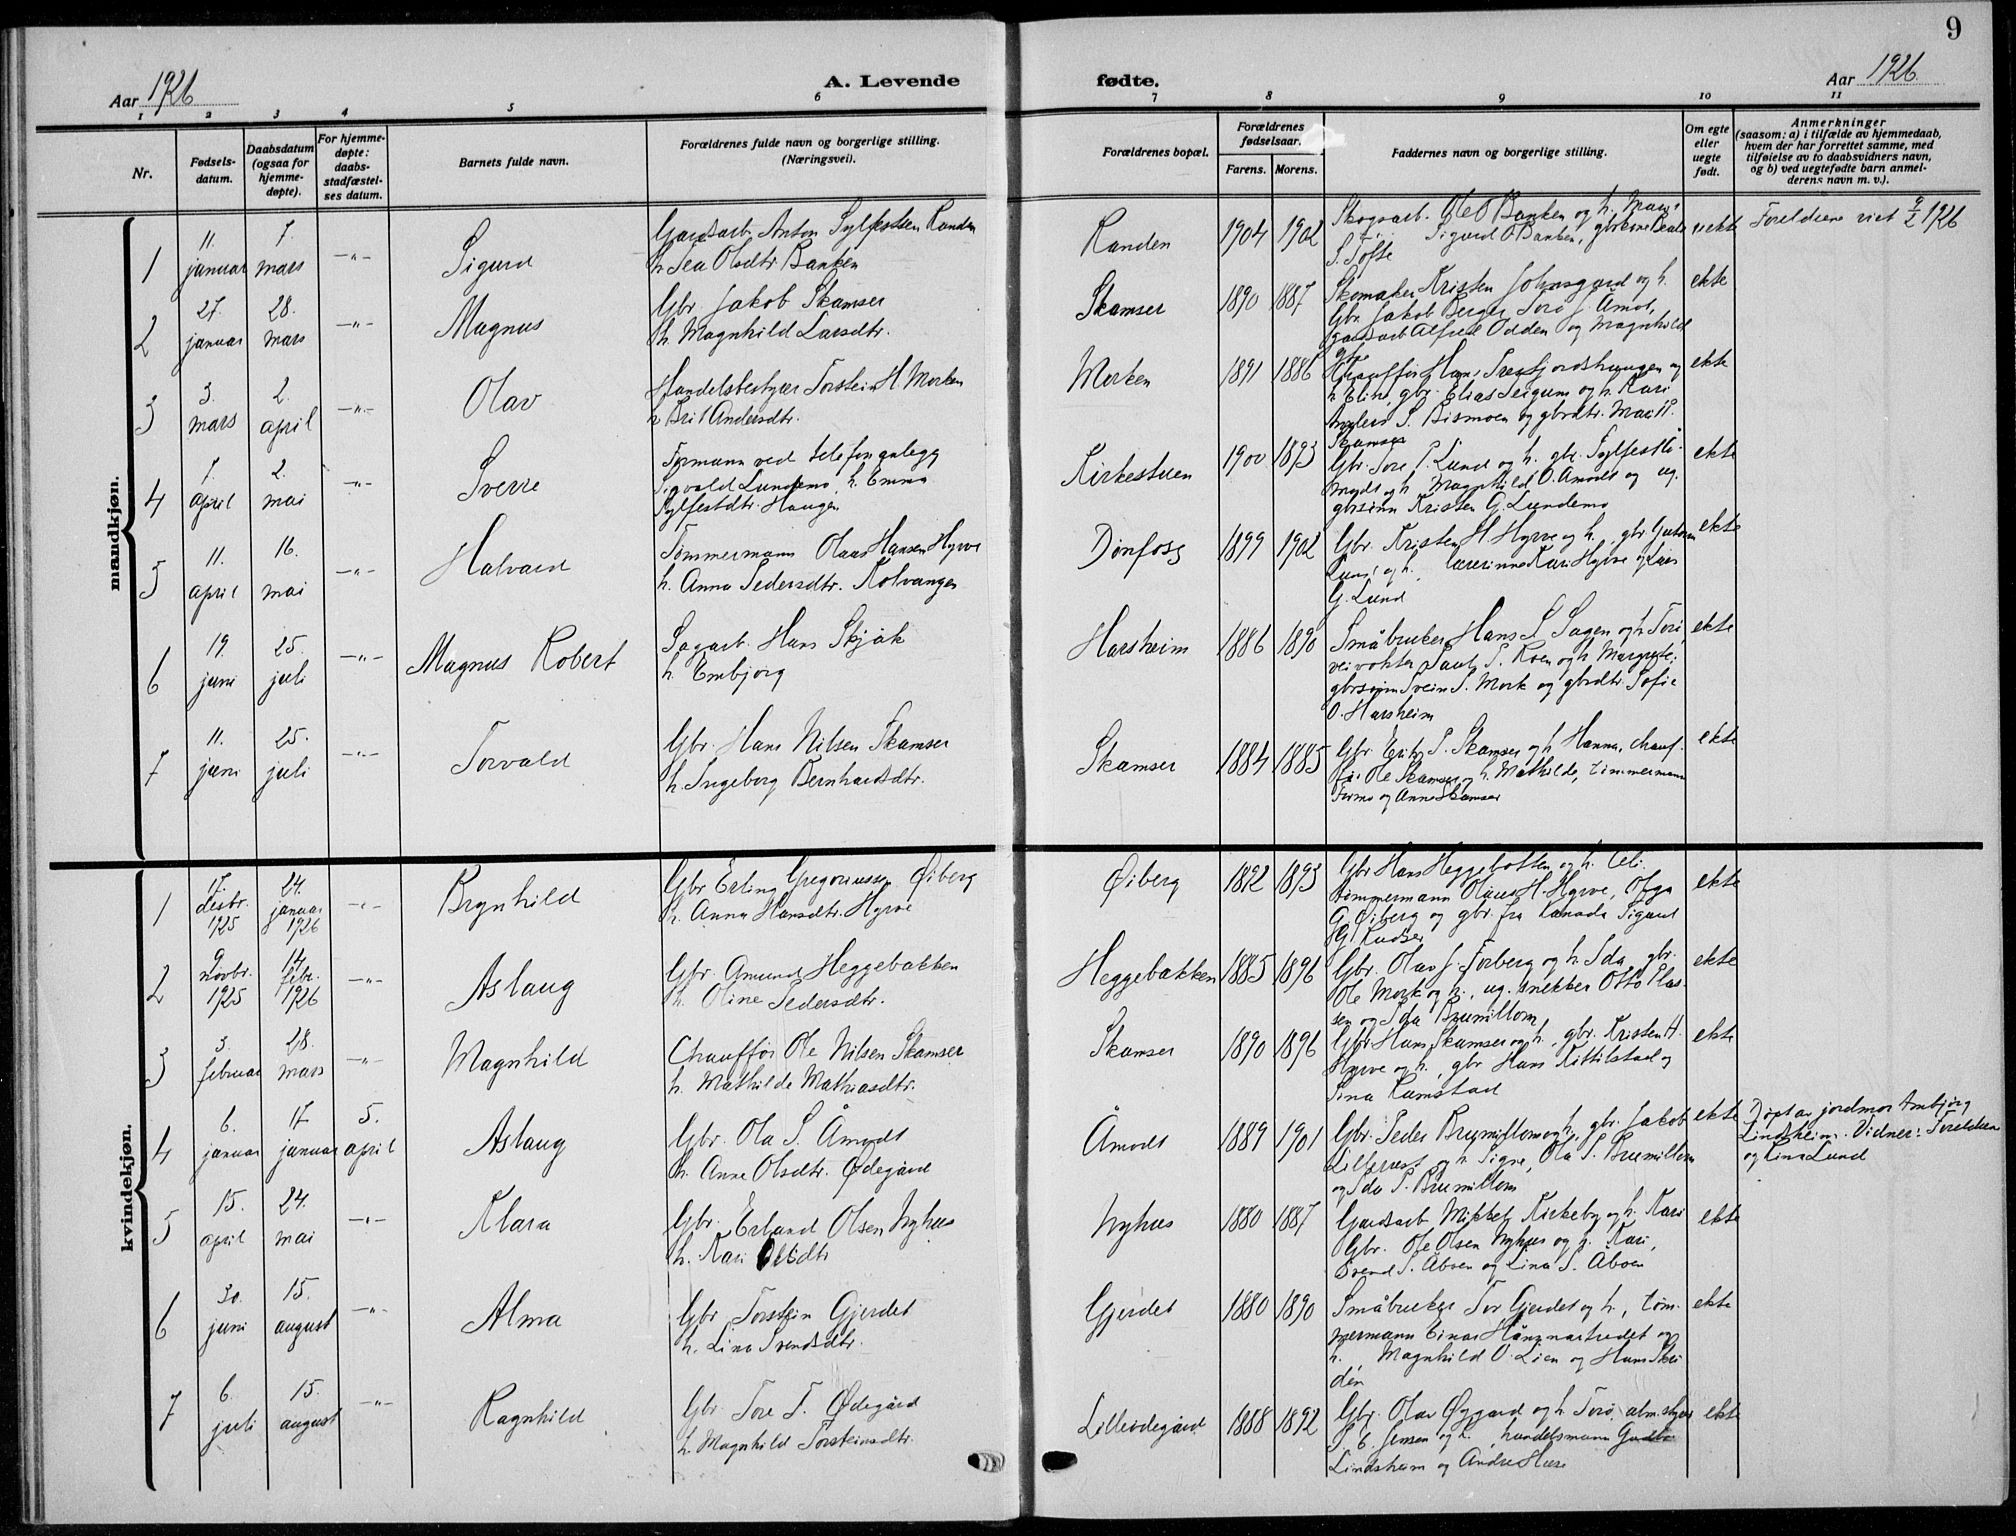 9
Aar 1926
A. Levende
fødte.
Aar 1926
1 2 3 4 5 6 7 8 9 10 11
Nr.
Fødsels-
datum.
Daabsdatum
(ogsaa for
hjemme-
døpte).
For hjemme-
døpte:
daabs-
stadfæstel-
ses datum.
Barnets fulde navn.
Forældrenes fulde navn og borgerlige stilling.
(Næringsvei).
Forældrenes bopæl.
Forældrenes
fødselsaar.
Farens. Morens.
Faddernes navn og borgerlige stilling.
Om egte
eller
uegte
født.
Anmerkninger
(saasom: a) i tilfælde av hjemmedaab,
hvem der har forrettet samme, med
tilføielse av to daabsvidners navn,
og b) ved uegtefødte barn anmel-
derens navn m. v.).
mandkjøn.
1
11.
januar
7.
mars
—"—
Sigurd
Gardsarb. Anton Sylfestsen Randen
h. Tea Olsdtr. Banken
Randen
1904 1902
Skogsarb. Ole O Banken og h. Mari,
Sigurd O Banken,
S. Tofte
uekte
Foreldrene viet 1926
2
27.
januar
28.
mars
—"—
Magnus
Gbr. Jakob Skamser
h. Magnhild Larsdtr.
Skamser
1890 1887
Skomaker Kristen Johnsgard og h.
Gbr. Jakob Berger, Tore J. Åmot,
gardsarb Alfred Odden og Magnhild
ekte
3
3.
mars
2.
april
—"—
Olav
Handelsbestyrer Torstein H. Morken
h. Brit Andersdtr.
Morken
1891 1886
Chauffør Hans og
h. Eline, gbr. Elias Seigum og h. Kari
Anders S. Bismoen og gbrdtr. Mari P.
Skamser
ekte
4
7.
april
2.
mai
—"—
Sverre
Formann ved telefonanlegg
Sigvald Lundemo, h. Emma
Sylfestdtr. Haugen
Kirkestuen
1900 1893
Gbr. Tore P. Lund og h. gbr. Sylfest
og h. Magnhild O. Åmodt og ug.
gbrsønn Kristen G. Lundemo
ekte
5
11.
april
16.
mai
—"—
Halvard
Tømmermann Olaus Hansen Hyrve
h. Anna Pedersdtr. Kolvangen
Dønfoss
1899 1902
Gbr. Kristen H. Hyrve og h., gbr.
Lund og h., lærerinne Kari Hyrve og Lars
G. Lund
ekte
6
19.
juni
25.
juli
—"—
Magnus Robert
Sagarb. Hans Skjåk
h. Embjørg
Harsheim
1886 1890
Småbruker Hans S. Sagen og h. Tori,
veivokter Paul S. Roen og h. Margrete,
gbrsønn Svein S. Mork og gbrdtr. Sofie
O. Harsheim
ekte
7
11.
juni
25.
juli
—"—
Torvald
Gbr. Hans Nilsen Skamser
h. Ingeborg Bernhardsdtr.
Skamser
1884 1885
Gbr. Erik P. Skamser og h. Hanna, chauf-
før Ole Skamser og h. Mathilde, tømmermann
og Anne Skamser
ekte
kvindekjøn.
1
17.
desbr.
1925
24.
januar
1926
—"—
Brynhild
Gbr. Erling Gregoriussen Øiberg
h. Anna Hansdtr. Hyrve
Øiberg
1892 1893
Gbr Hans Heggebotten og h. Celi
tømmermann Olaus H. Hyrve, Olga
G. Øiberg og gbr. fra Kanada Sigurd
ekte
2
9
novbr.
1925
14.
febr.
1926
—"—
Aslaug
Gbr. Amund Heggebakken
h. Oline Pedersdtr.
Heggebakken
1885 1896
Gbr. Olav J. Forberg og h. Ida, gbr.
Ole Mork og h., ug. snekker Otto Plas-
sen og Ida Brumillom
ekte
3
3.
februar
28.
mars
—"—
Magnhild
Chauffør Ole Nilsen Skamser
h. Mathilde Mathiasdtr.
Skamser
1890 1896
Gbr Hans Skamser og h., gbr. Kristen H.
Hyrve og h., gbr Hans Kittilstad og
Sina Ramstad
ekte
4
6.
januar
17
januar
5.
april
Aslaug
Gbr. Ola S. Åmodt
h. Anne Olsdtr. Ødegård
Åmodt
1889 1901
Gbr. Peder Brumillom og h., gbr. Jakob
og h. Signe, Ola P. Brumillom
og Ida P. Brumillom
ekte
Døpt av jordmor Ambjørg
Lindsheim. Vidner: Foreldrene
og Lina Lund
5
15.
april
24.
mai
—"—
Klara
Gbr. Erland Olsen Nyhus
h. Kari Olsdtr
Nyhus
1880 1887
Gardsarb. Mikkel Kirkeby og h. Kari
Gbr. Ole Olsen Nyhus og h. Kari,
Svend S. Åboen og Lina S. Åboen
ekte
6
30.
juni
15.
august
—"—
Alma
Gbr Torstein Gjerdet
h. Lina Svendsdtr.
Gjerdet
1880 1890
Småbruker Tor Gjerdet og h., tøm-
mermann Einar og
h., Magnhild O. Lien og Hans Skri
den
ekte
7
6.
juli
15.
august
—"—
Ragnhild
Gbr. Tore T. Ødegård
h. Magnhild Torsteinsdtr.
Lilleødegård
1888 1892
Gbr. Olav Øygard og h. Torø, alm.
S. C. Jensen og h., handelsmann
Lindsheim og Andre
ekte